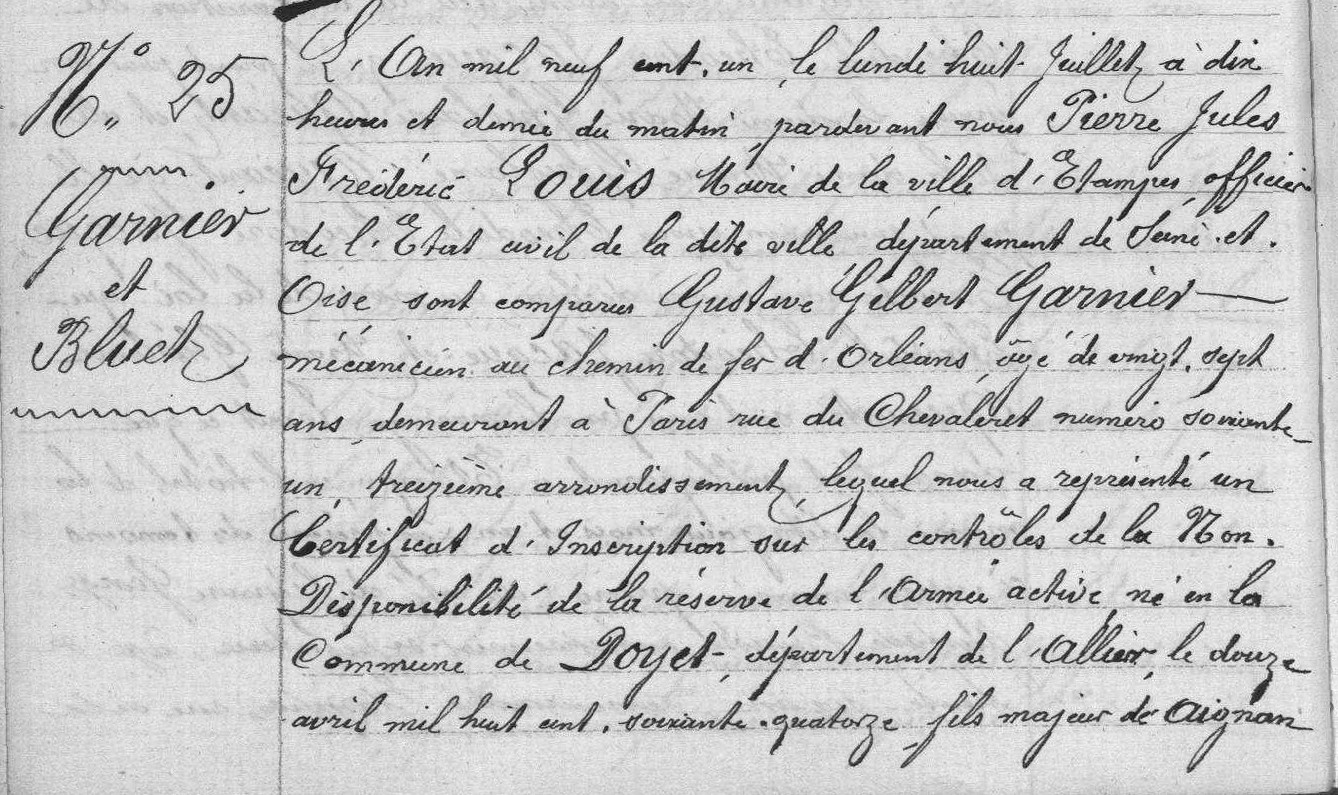 N° 25
Garnier
et
Bluet
L'An mil neuf cent. un le lundi huit Juillet, à dix
heures et demie du matin pardevant nous Pierre Jules
Frédéric Louis Maire de la ville d'Etampes, officier
de l'Etat civil de la dite ville, département de Seine. et.
Oise sont comparus Gustave Gilbert Garnier —
mécanicien au chemin de fer d'Orléans, âgé de vingt. sept
ans, demeurant à Paris rue du Chevaleret numéro soixante-
un, treizième arrondissement, lequel nous a représenté un
Certificat d'Inscription sur les contrôles de la Non.
Disponibilité de la réserve de l'Armée active, né en la
Commune de Doyet, département de l'Allier, le douze
avril mil huit cent. soixante. quatorze, fils majeur de Aignan